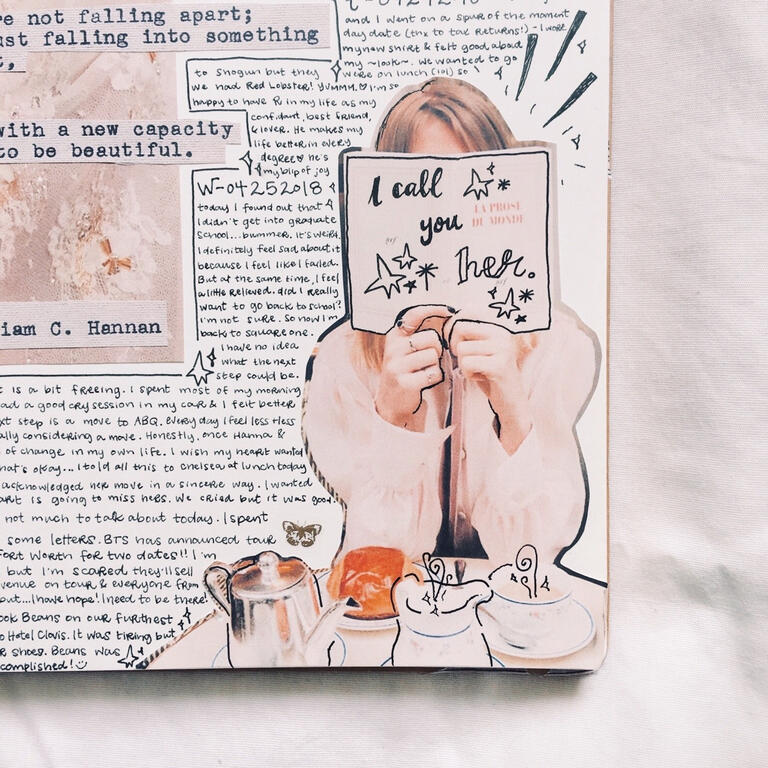 re not falling apart;
ust falling into something
t,
with a new capacity
to be beautiful.
iam C. Hannan
and I went on a spur of the moment
day date (thx to tax returns!) - I wore
my new shirt & felt good about
my ~look~. We wanted to go
to Shogun but they were on lunch (lol) so
we had Red Lobster! YUMMM. I'm so
happy to have R in my life as my
confidant, best friend,
& lover. He makes my
life better in every
degree ♡ he's
my blip of joy
W-04252018
today I found out that
I didn't get into graduate
school...bummer. It's weird.
I definitely feel sad about it
because I feel like I failed.
But at the same time, I feel
a little relieved. did I really
want to go back to school?
I'm not sure. So now I'm
back to square one.
I have no idea
what the next
step could be.
t is a bit freeing. I spent most of my morning
ad a good cry session in my car & I felt better
xt step is a move to ABQ. Everyday I feel less & less
ally considering a move. Honestly, once Hanna &
of change in my own life. I wish my heart wanted
hat's okay... I told all this to Chelsea at lunch today
acknowledged her move in a sincere way. I wanted
art is going to miss hers. We cried but it was good.
not much to talk about today. I spent
some letters. BTS has announced tour
Fort Worth for two dates!! I'm
but I'm scared they'll sell
venue on tour & everyone from
but...I have hope! I need to be there!
ook Beans on our furthest
o Hotel Clovis. It was tiring but
r shoes. Beans was
complished! :)
I call
you
her.
LA PROSE
DU MONDE